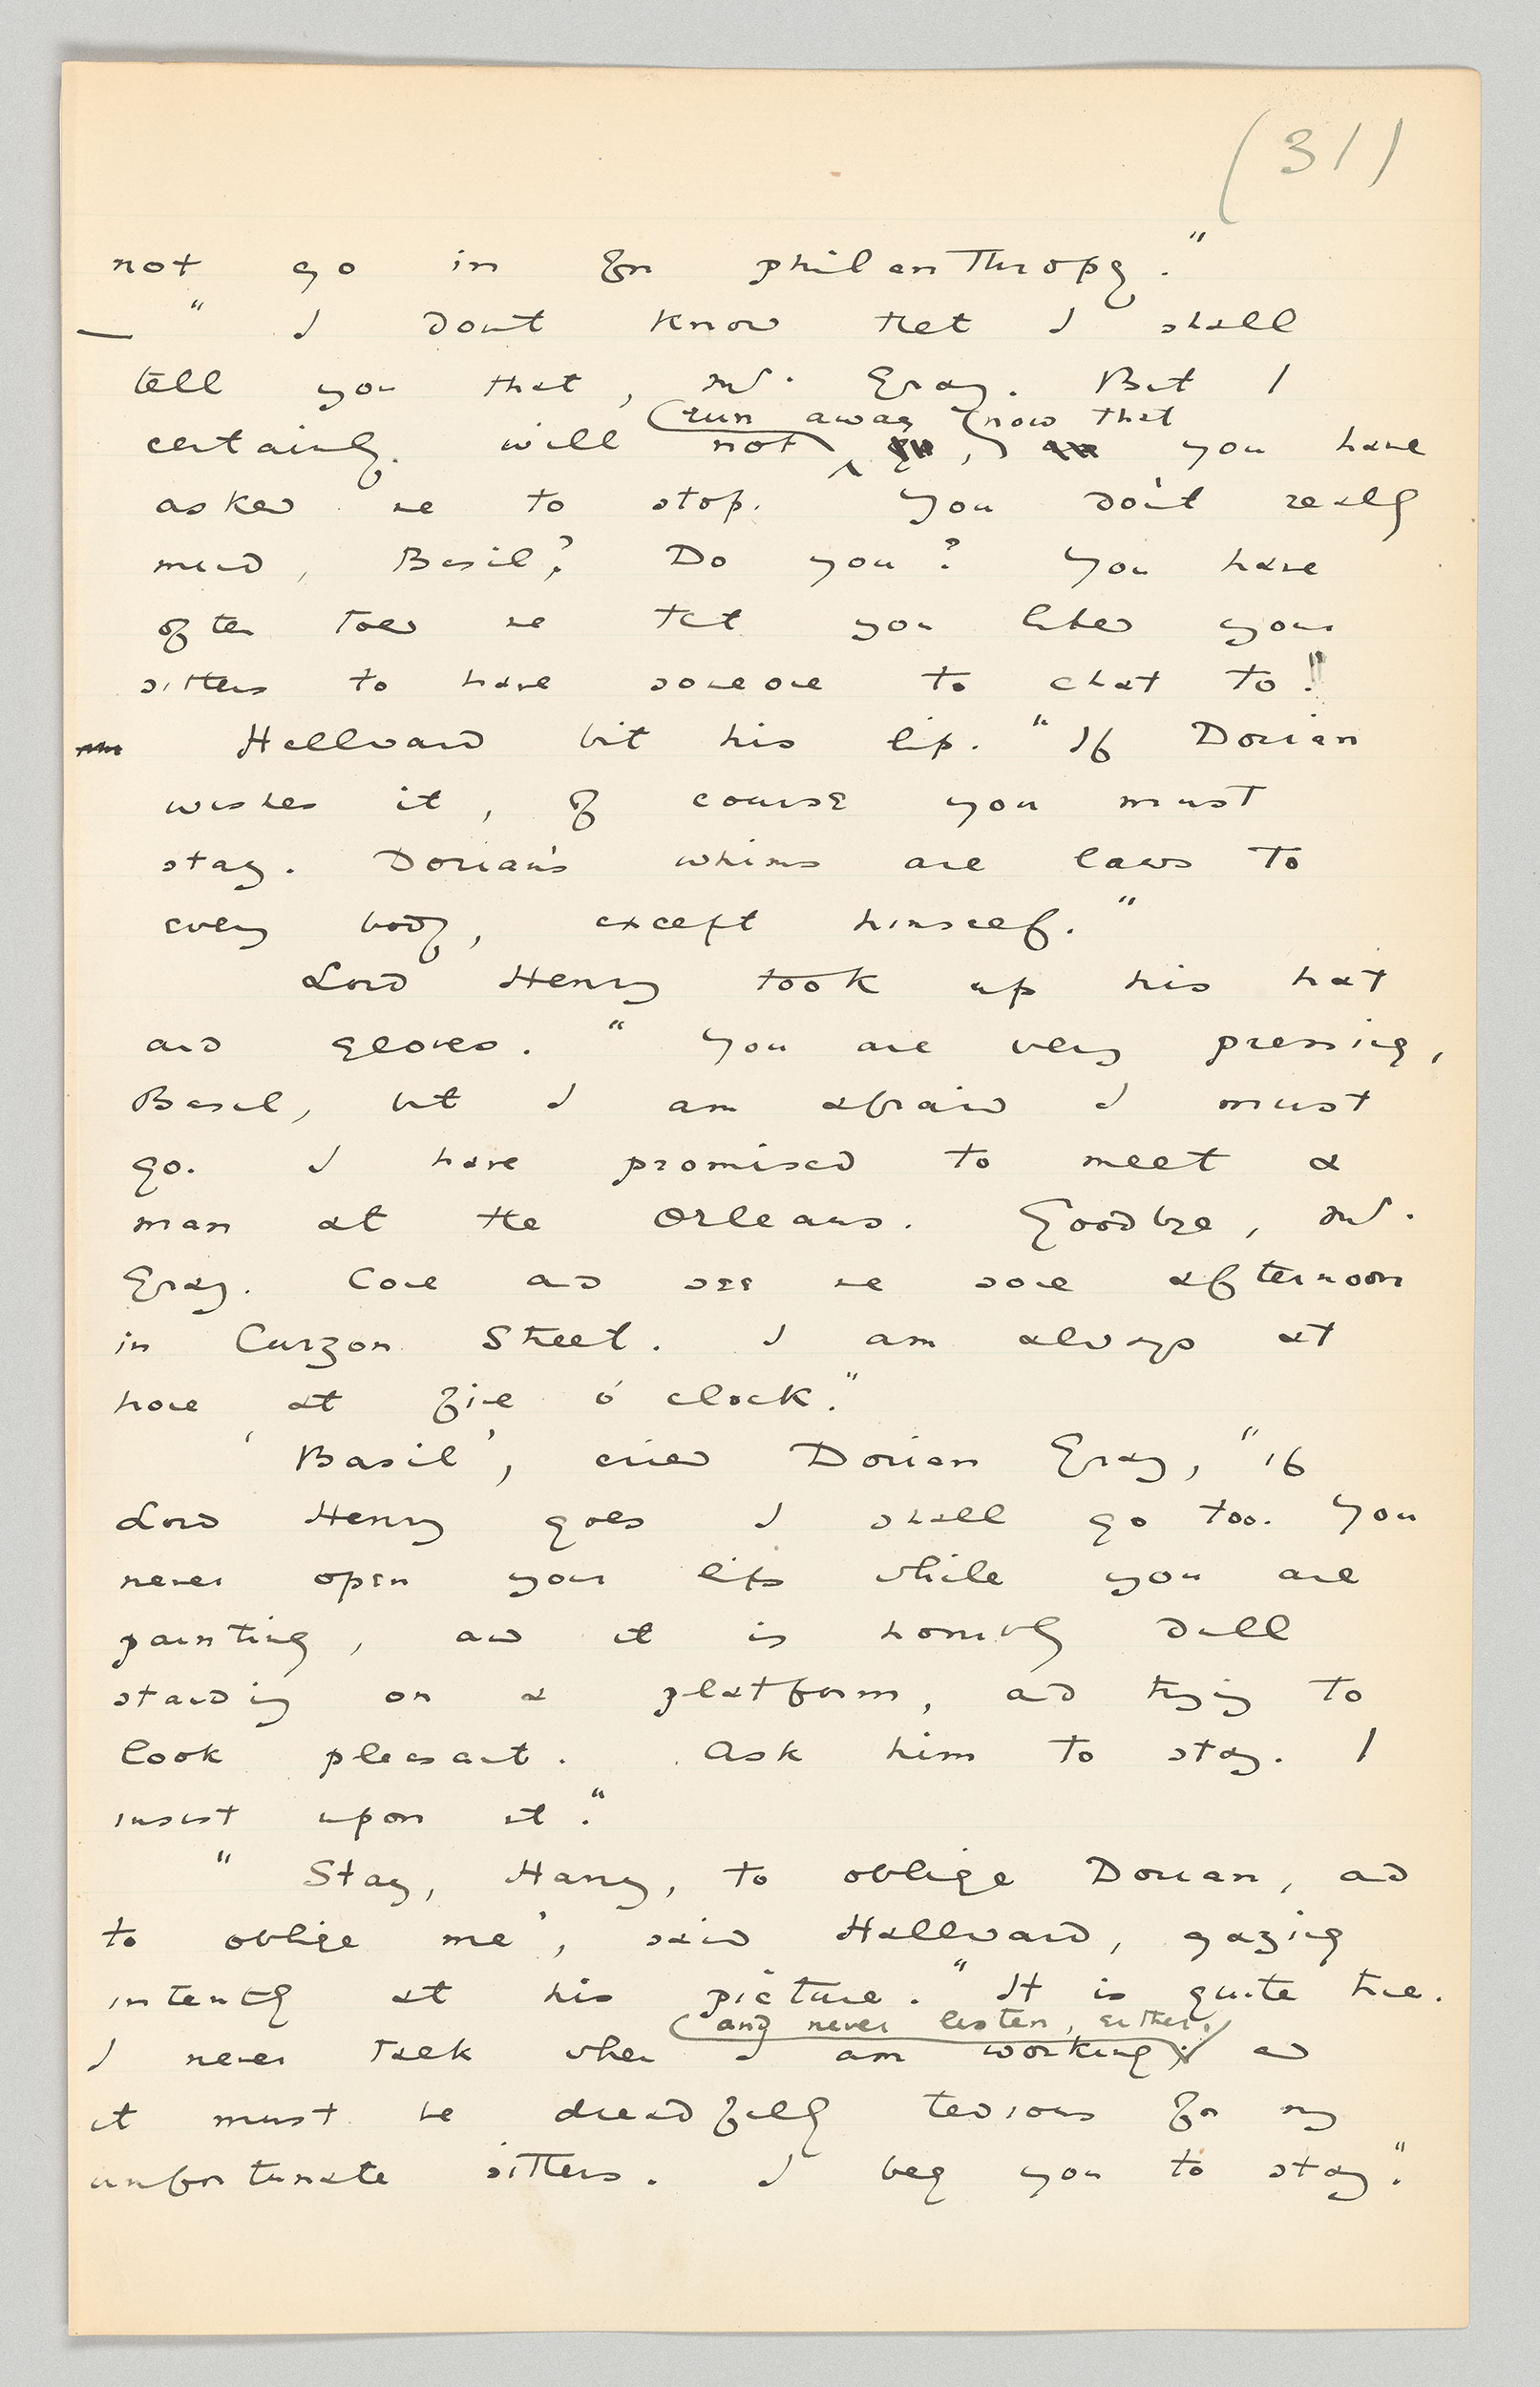 (31)
not go in for philanthropy."
— " I dont know that I shall
tell you that, Mr. Gray. But I
run away now that
certainly will not , you have
asked me to stop. You don't really
mind, Basil? Do you? You have
often told me that you liked your
sitters to have someone to chat to."
Hallward bit his lip. "If Dorian
wishes it, of course you must
stay. Dorian's whims are laws to
every body, except himself."
Lord Henry took up his hat
and gloves. " You are very pressing,
Basil, but I am afraid I must
go. I have promised to meet a
man at the Orleans. Goodbye, Mr.
Gray. Come and see me some afternoon
in Curzon Street. I am always at
home at five o'clock."
'Basil', cried Dorian Gray, "if
Lord Henry goes I shall go too. You
never open your lips while you are
painting, and it is horribly dull
standing on a platform, and trying to
look pleasant. Ask him to stay. I
insist upon it."
" Stay, Harry, to oblige Dorian, and
to oblige me', said Hallward, gazing
intently at his picture. "It is quite true.
and never listen, either.
I never talk when I am working, and
it must be dreadfully tedious for my
unfortunate sitters. I beg you to stay."